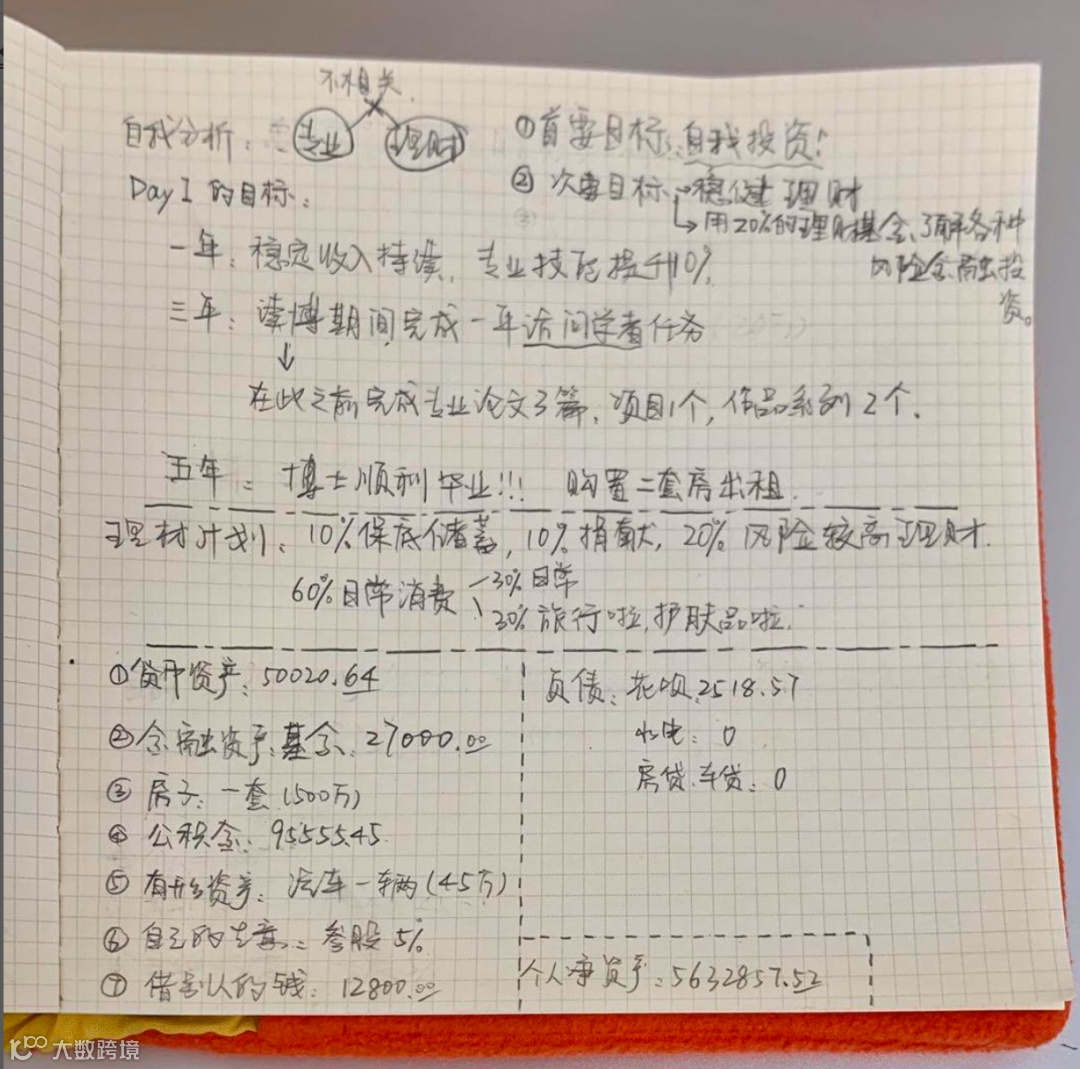 不相关
自我分析：专业 理财
①首要目标：自我投资！
Day 1 的目标：
②次要目标→稳健理财
↳用20%的理财基金、了解各种
风险金融投
资。
一年：稳定收入持续，专业技能提升10%。
三年：读博期间完成一年访问学者任务
↓
在此之前完成专业论文3篇，项目1个，作品系列2个．
五年：博士顺利毕业!!! 购置二套房出租．
理材计划：10%保底储蓄，10%捐献，20%风险较高理财．
60%日常消费 30%日常
30%旅行啦，护肤品啦．
①货币资产：50020.64
②金融资产：基金：27000.00
③房子：一套（500万）
④公积金：95555.45
⑤有形资产：汽车一辆（45万）
⑥自己的生意：参股5%
⑦借别人的钱：12800.00
负债：花呗．2518.57
水电：0
房贷．车贷：0
个人净资产：5632857.52
大数跨境